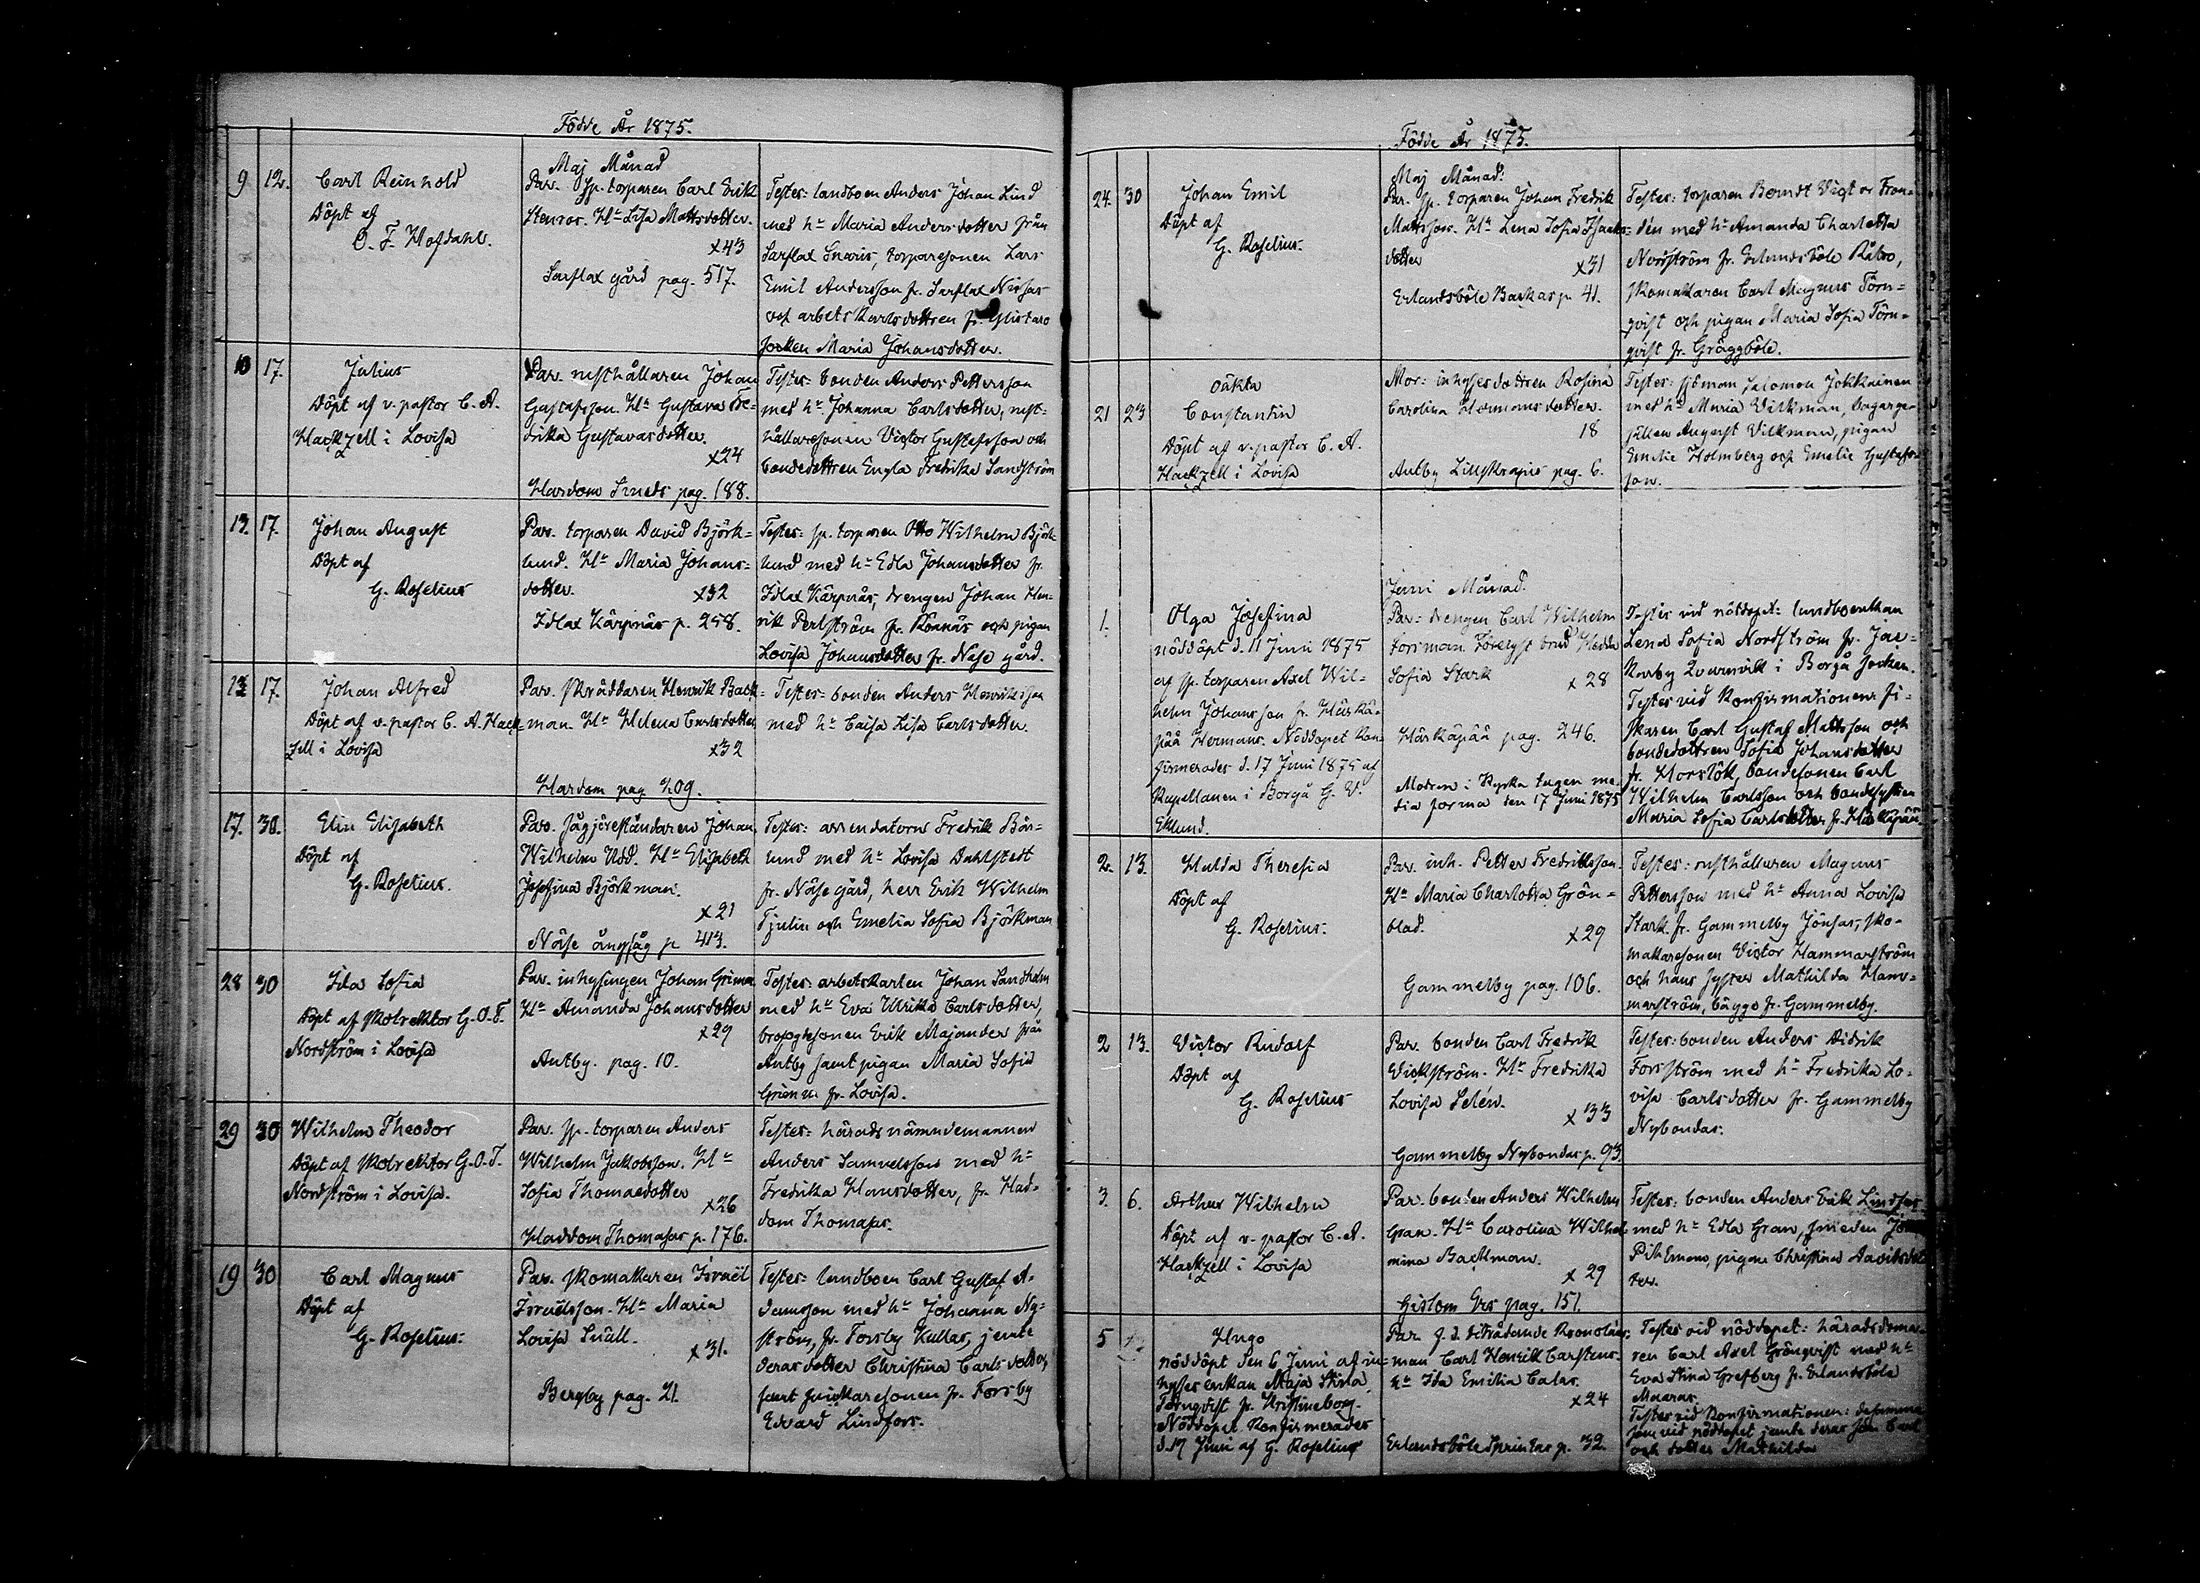 Födde År 1875.
Maj Månad
9 12. Carl Reinhold
Döpt af
O. F. Hofdahl.
Par. sp. torparen Carl Erik
Stenros. H<sup>u</sup> Lisa Mattsdotter.
x43
Sarflax gård pag. 517.
Testes: landboen Anders Johan Lind
med h<sup>u</sup> Maria Andersdotter från
Sarflax Snaris, torparesonen Lars
Emil Andersson fr. Sarflax
och arbetskarlsdottren fr.
Socken Maria Johansdotter.
10 17. Julius
Döpt af v. pastor C. A.
Hackzell i Lovisa
Par. rusthållaren Johan
Gustafsson. H<sup>u</sup> Gustava Fre-
drika Gustavasdotter.
x24
Hardom Smeds pag. 188.
Testes: bonden Anders Pettersson
med h<sup>u</sup> Johanna Carlsdotter, rust-
hållaresonen Victor Gustafsson och
bondedottren Engla Fredrika Sandström
13. 17. Johan August
Döpt af
G. Roselius
Par. torparen David Björk=
lund. H<sup>u</sup> Maria Johans=
dotter.
x32
Idlax Kärpnäs p. 258.
Testes: sp. torparen Otto Wilhelm Björk-
lund med h<sup>u</sup> Edla Johansdotter fr.
Idlax Kärpnäs, drengen Johan Hen-
rik Perlström fr. Köknäs och pigan
Lovisa Johansdotter fr. Näse gård.
13 17. Johan Alfred
Döpt af v. pastor C. A. Hack-
zell i Lovisa
Par. skräddaren Henrik Back=
man. H<sup>u</sup> Helena Carlsdotter
x32
Hardom pag. 209.
Testes: bonden Anders Henriksson
med h<sup>u</sup> Caisa Lisa Carlsdotter.
17. 30. Elin Elisabeth
Döpt af
G. Roselius.
Par. sågföreståndaren Johan
Wilhelm Udd. H<sup>u</sup> Elisabeth
Josefina Björkman.
x21
Näse ångsåg p. 413.
Testes: arrendatorn Fredrik Bör=
lund med h<sup>u</sup> Lovisa Dahlstedt
fr. Näse gård, herr Erik Wilhelm
Tjulin och Emelia Sofia Björkman
28 30 Ida Sofia
Döpt af skolrektor G. O. T.
Nordström i Lovisa
Par. inhysingen Johan Griman
H<sup>u</sup> Amanda Johansdotter
x29
Antby. pag. 10.
Testes: arbetskarlen Johan Sandholm
med h<sup>u</sup> Eva Ulrika Carlsdotter,
Erik Majander från
Antby samt pigan Maria Sofia
Griman fr. Lovisa.
29 30 Wilhelm Theodor
Döpt af skolrektor G. O. T.
Nordström i Lovisa.
Par. sp. torparen Anders
Wilhelm Jakobsson. H<sup>u</sup>
Sofia Thomasdotter
x26
Haddom Thomasas p. 176.
Testes: häradsnämndemannen
Anders Samuelsson med h<sup>u</sup>
Fredrika Hansdotter, fr. Had-
dom Thomasas.
19 30 Carl Magnus
Döpt af
G. Roselius.
Par. skomakaren Israel
Israelsson. H<sup>u</sup> Maria
Lovisa Snäll.
x31.
Bergby pag. 21.
Testes: landboen Carl Gustaf A-
damsson med h<sup>u</sup> Johanna Ny=
ström, fr. Forsby Kullas, jemte
deras dotter Christina Carlsdotter,
samt snickaresonen fr. Forsby
Edvard Lindfors.
Födde År 1875.
Maj Månad.
24. 30 Johan Emil
Döpt af
G. Roselius.
Par. sp. torparen Johan Fredrik
Mattsson. H<sup>u</sup> Lena Sofia Isaks=
dotter
x31
Erlandsböle Backas p. 41.
Testes: torparen Berndt Victor Fron-
dén med h<sup>u</sup> Amanda Charlotta
Nordström fr. Erlandsböle Råbro,
skomakaren Carl Magnus Törn=
qvist och pigan Maria Sofia Törn=
qvist fr. Gräggböle.
oäkta
21 23 Constantin
Döpt af v. pastor C. A.
Hackzell i Lovisa
Mor: inhysesdottren Rosina
Carolina Hermansdotter.
18
Antby Lillskrapis pag. 6.
Testes: sjöman Salomon Jokkainen
med h<sup>u</sup> Maria Vilkman, bagarge-
sällen August Vilkman, pigan
Emelie Holmberg och Emelie Gustafs-
son.
Juni Månad.
1. Olga Josefina
nöddöpt d. 11 Juni 1875
af sp. torparen Axel Wil-
helm Johansson fr. Härkä-
pää Hermans. Nöddopet kon-
firmerades d. 17 Juni 1875 af
Kapellanen i Borgå G. V.
Eklund.
Par: drengen Carl Wilhelm
Forsman. Förelyst brud Hedda
Sofia Stark
x28
Härkäpää pag. 246.
Modren i Kyrka tagen me-
dia forma den 17 Juni 1875
Testes vid nöddopet: landboenkan
Lena Sofia Nordström fr. Jac-
karby Qvarnvik i Borgå socken.
Testes vid Konfirmationen: fi-
skaren Carl Gustaf Mattsson och
bondedottren Sofia Johansdotter
fr. Horslök, bondesonen Carl
Wilhelm Carlsson och bondsystren
Maria Sofia Carlsdotter fr. Härkäpää
2. 13. Hulda Theresia
Döpt af
G. Roselius.
Par. inh. Petter Fredriksson.
H<sup>u</sup> Maria Charlotta Grön=
blad.
x29
Gammelby pag. 106.
Testes: rusthållaren Magnus
Pettersson med h<sup>u</sup> Anna Lovisa
Stark fr. Gammelby Jönsas, sko-
makaresonen Victor Hammarström
och hans syster Mathilda Ham-
marström, bägge fr. Gammelby.
2 13. Victor Rudolf
Döpt af
G. Roselius
Par. bonden Carl Fredrik
Vickström. H<sup>u</sup> Fredrika
Lovisa Selén.
x33
Gammelby Nybondas p. 93.
Testes: bonden Anders Didrik
Forsström med h<sup>u</sup> Fredrika Lo-
visa Carlsdotter fr. Gammelby
Nybondas.
3. 6. Arthur Wilhelm
Döpt af v. pastor C. A.
Hackzell i Lovisa
Par. bonden Anders Wilhelm
Gran. H<sup>u</sup> Carolina Wilhel-
mina Backman.
x29
Gislom Grs pag. 151.
Testes: bonden Anders Erik Lindfors
med h<sup>u</sup> Edla Gran, smeden
pigan Christina Davidsdot-
ter.
5 Hugo
nöddöpt den 6 Juni af in-
hyses enkan Maja Stina
Törnqvist fr. Kristineborg.
Nöddopet konfirmerades
d. 17 Juni af G. Roselius
Par. f. d. biträdande Kronoläns-
man Carl Henrik Carstens.
h<sup>u</sup> Ida Emilia Calas.
x24
Erlandsböle Sprintas p. 32.
Testes vid nöddopet: häradsdoma-
ren Carl Axel Grönqvist med h<sup>u</sup>
Eva Stina Grefberg fr. Erlandsböle
Muaras.
Testes vid konfirmationen: desamma
som vid nöddopet jemte deras son Carl
och dotter Mathilda